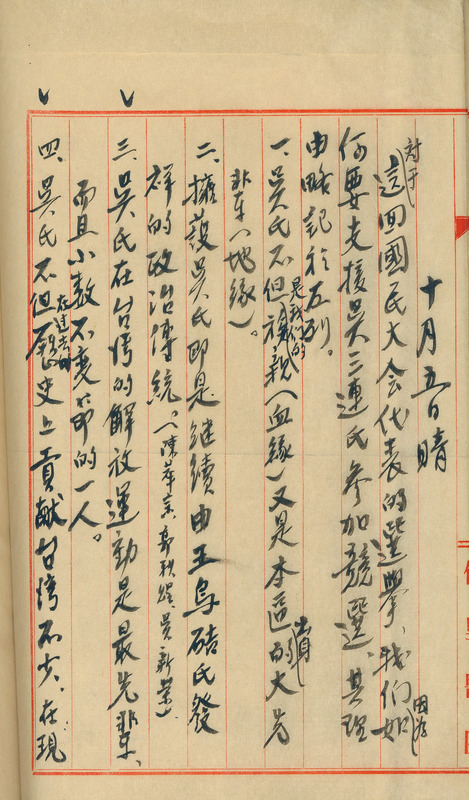 十月五日 晴
對于這回國民大会代表的選舉、我们如
何要支援吳三連氏參加競選、因為其理
由略記於左列。
一、吳氏不但是我们的親(血緣)又是本區出身的大
輩(地緣)。
二、擁護吳氏即是继續由王烏硈氏發
祥的政治傳統。(陳華宗、吳新榮)
三、吳氏在台灣的解放運動是最先輩、
而且小數不變節的一人。
四、吳氏不但在过去歷史上貢献台灣不少。在現